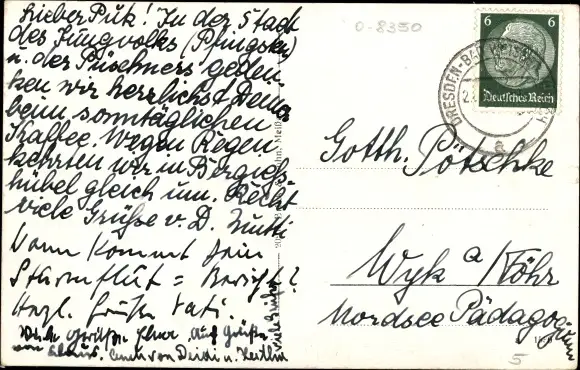 Lieber Puk! In der Stadt
des Jungvolks (Pfingsten)
u. der Püschners geden-
ken wir herzlichst Deiner
beim sonntäglichen
Kaffee. Wegen Regen
kehrten wir in Berggieß-
hübel gleich um. Recht
viele Grüße v. D. Mutti
Wann kommt Dein
Sturmflut = Bericht?
Herzl. Grüße Vati.
Viele Grüße
von Klaus.
o-8350
6 6
Deutsches Reich
DRESDEN-BAD
a
Gotth. Pötschke
Wyk a/Föhr
Nordsee Pädagogium
5